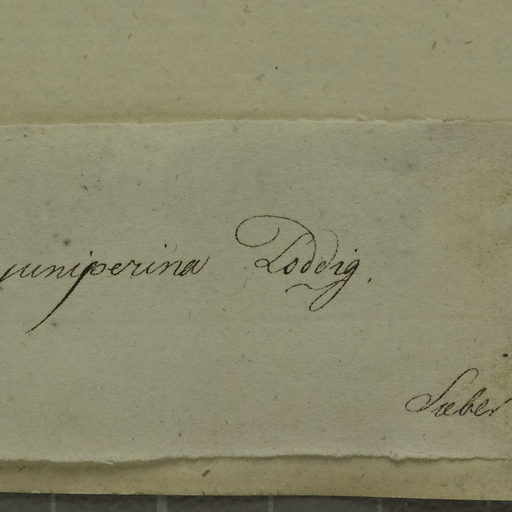 juniperina Loddig.
Sieber